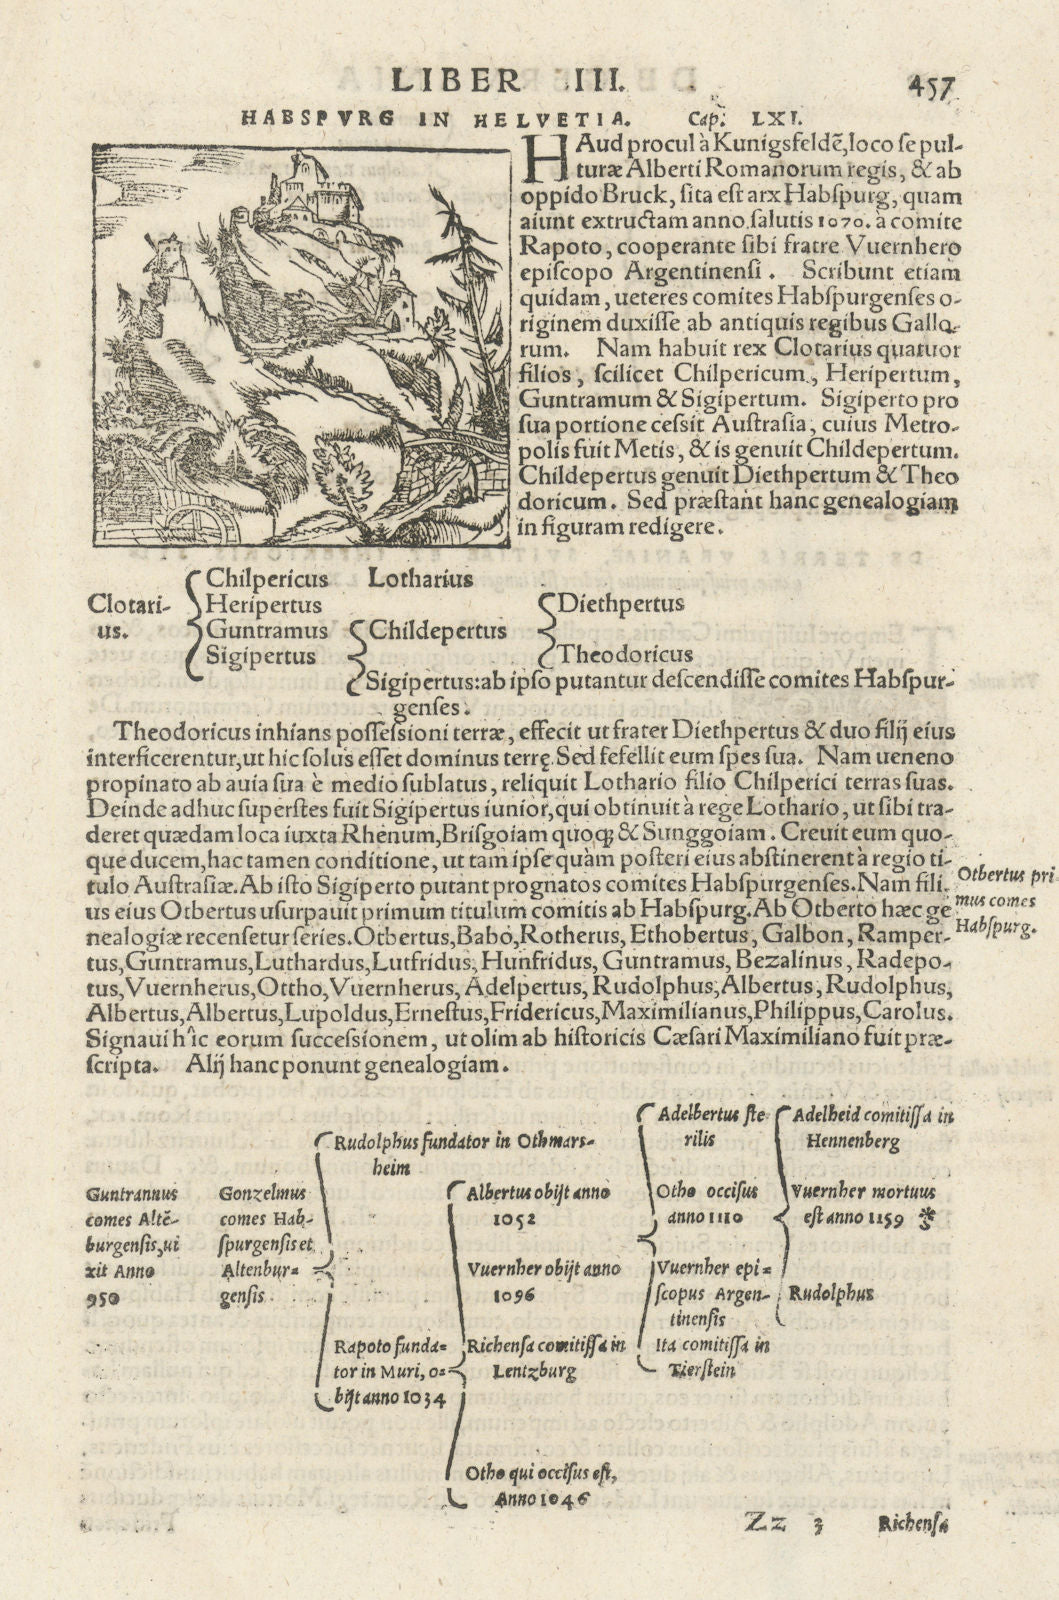 LIBER III. 457
HABSPVRG IN HELVETIA. Cap. LXI.
HAud procul à Kunigsfeldẽ, loco ſepul-
turæ Alberti Romanorum regis, & ab
oppido Bruck, ſita eſt arx Habſpurg, quam
aiunt extructam anno ſalutis 1070. à comite
Rapoto, cooperante ſibi fratre Vuernhero
epiſcopo Argentinenſi. Scribunt etiam
quidam, ueteres comites Habſpurgenſes o-
riginem duxiſſe ab antiquis regibus Gallo-
rum. Nam habuit rex Clotarius quatuor
filios, ſcilicet Chilpericum, Heripertum,
Guntramum & Sigipertum. Sigiperto pro
ſua portione ceſsit Auſtraſia, cuius Metro-
polis fuit Metis, & is genuit Childepertum.
Childepertus genuit Diethpertum & Theo
doricum. Sed præſtant hanc genealogiam
in figuram redigere.
Chilpericus Lotharius
Clotari- Heripertus Diethpertus
us. Guntramus Childepertus
Sigipertus Theodoricus
Sigipertus: ab ipſo putantur deſcendiſſe comites Habſpur-
genſes.
Theodoricus inhians poſſeſsioni terræ, effecit ut frater Diethpertus & duo filij eius
interficerentur, ut hic ſolus eſſet dominus terrę. Sed fefellit eum ſpes ſua. Nam ueneno
propinato ab auia ſua è medio ſublatus, reliquit Lothario filio Chilperici terras ſuas.
Deinde adhuc ſuperſtes fuit Sigipertus iunior, qui obtinuit à rege Lothario, ut ſibi tra-
deret quædam loca iuxta Rhenum, Briſgoiam quoq; & Sunggoiam. Creuit eum quo-
que ducem, hac tamen conditione, ut tam ipſe quàm poſteri eius abſtinerent à regio ti-
tulo Auſtraſiæ. Ab iſto Sigiperto putant prognatos comites Habſpurgenſes. Nam fili-
us eius Otbertus uſurpauit primum titulum comitis ab Habſpurg. Ab Otberto hæc ge
nealogiæ recenſetur ſeries. Otbertus, Babo, Rotherus, Ethobertus, Galbon, Ramper-
tus, Guntramus, Luthardus, Lutfridus, Hunfridus, Guntramus, Bezalinus, Radepo-
tus, Vuernherus, Ottho, Vuernherus, Adelpertus, Rudolphus, Albertus, Rudolphus,
Albertus, Albertus, Lupoldus, Erneſtus, Fridericus, Maximilianus, Philippus, Carolus.
Signaui hîc eorum ſucceſsionem, ut olim ab hiſtoricis Cæſari Maximiliano fuit præ-
ſcripta. Alij hanc ponunt genealogiam.
Otbertus pri
mus comes
Habſpurg.
Guntrannus
comes Altẽ-
burgenſis, ui
xit Anno
950
Gonzelmus
comes Hab-
ſpurgenſis et
Altenbur-
genſis
Rudolphus fundator in Othmars-
heim
Rapoto funda-
tor in Muri, o-
bijt anno 1034
Albertus obijt anno
1052
Vuernher obijt anno
1096
Richenſa comitiſſa in
Lentzburg
Otho qui occiſus eſt,
Anno 1046
Adelbertus ſte
rilis
Otho occiſus
anno 1110
Vuernher epi-
ſcopus Argen-
tinenſis
Ita comitiſſa in
Tierſtein
Adelheid comitiſſa in
Hennenberg
Vuernher mortuus
eſt anno 1159 *
Rudolphus
Zz 3 Richenſa